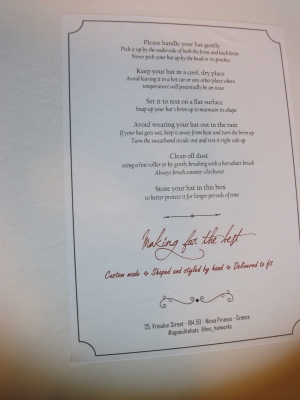 Please handle your hat gently
Pick it up by the underside of both the front and back brim
Never pick your hat up by the head or its pinches
Keep your hat in a cool, dry place
Avoid leaving it in a hot car or any other place where
temperature will potentially be an issue
Set it to rest on a flat surface
Snap up your hat's brim up to maintain its shape
Avoid wearing your hat out in the rain
If your hat gets wet, keep it away from heat and turn the brim up
Turn the sweatband inside out and rest it right side up
Clean off dust
using a lint roller or by gently brushing with a horsehair brush
Always brush counter-clockwise
Store your hat in this box
to better protect it for longer periods of time
Making for the best
Custom made ❖ Shaped and styled by hand ❖ Delivered to fit
25, Vrioulon Street - 184 50 - Nicea Piraeus - Greece